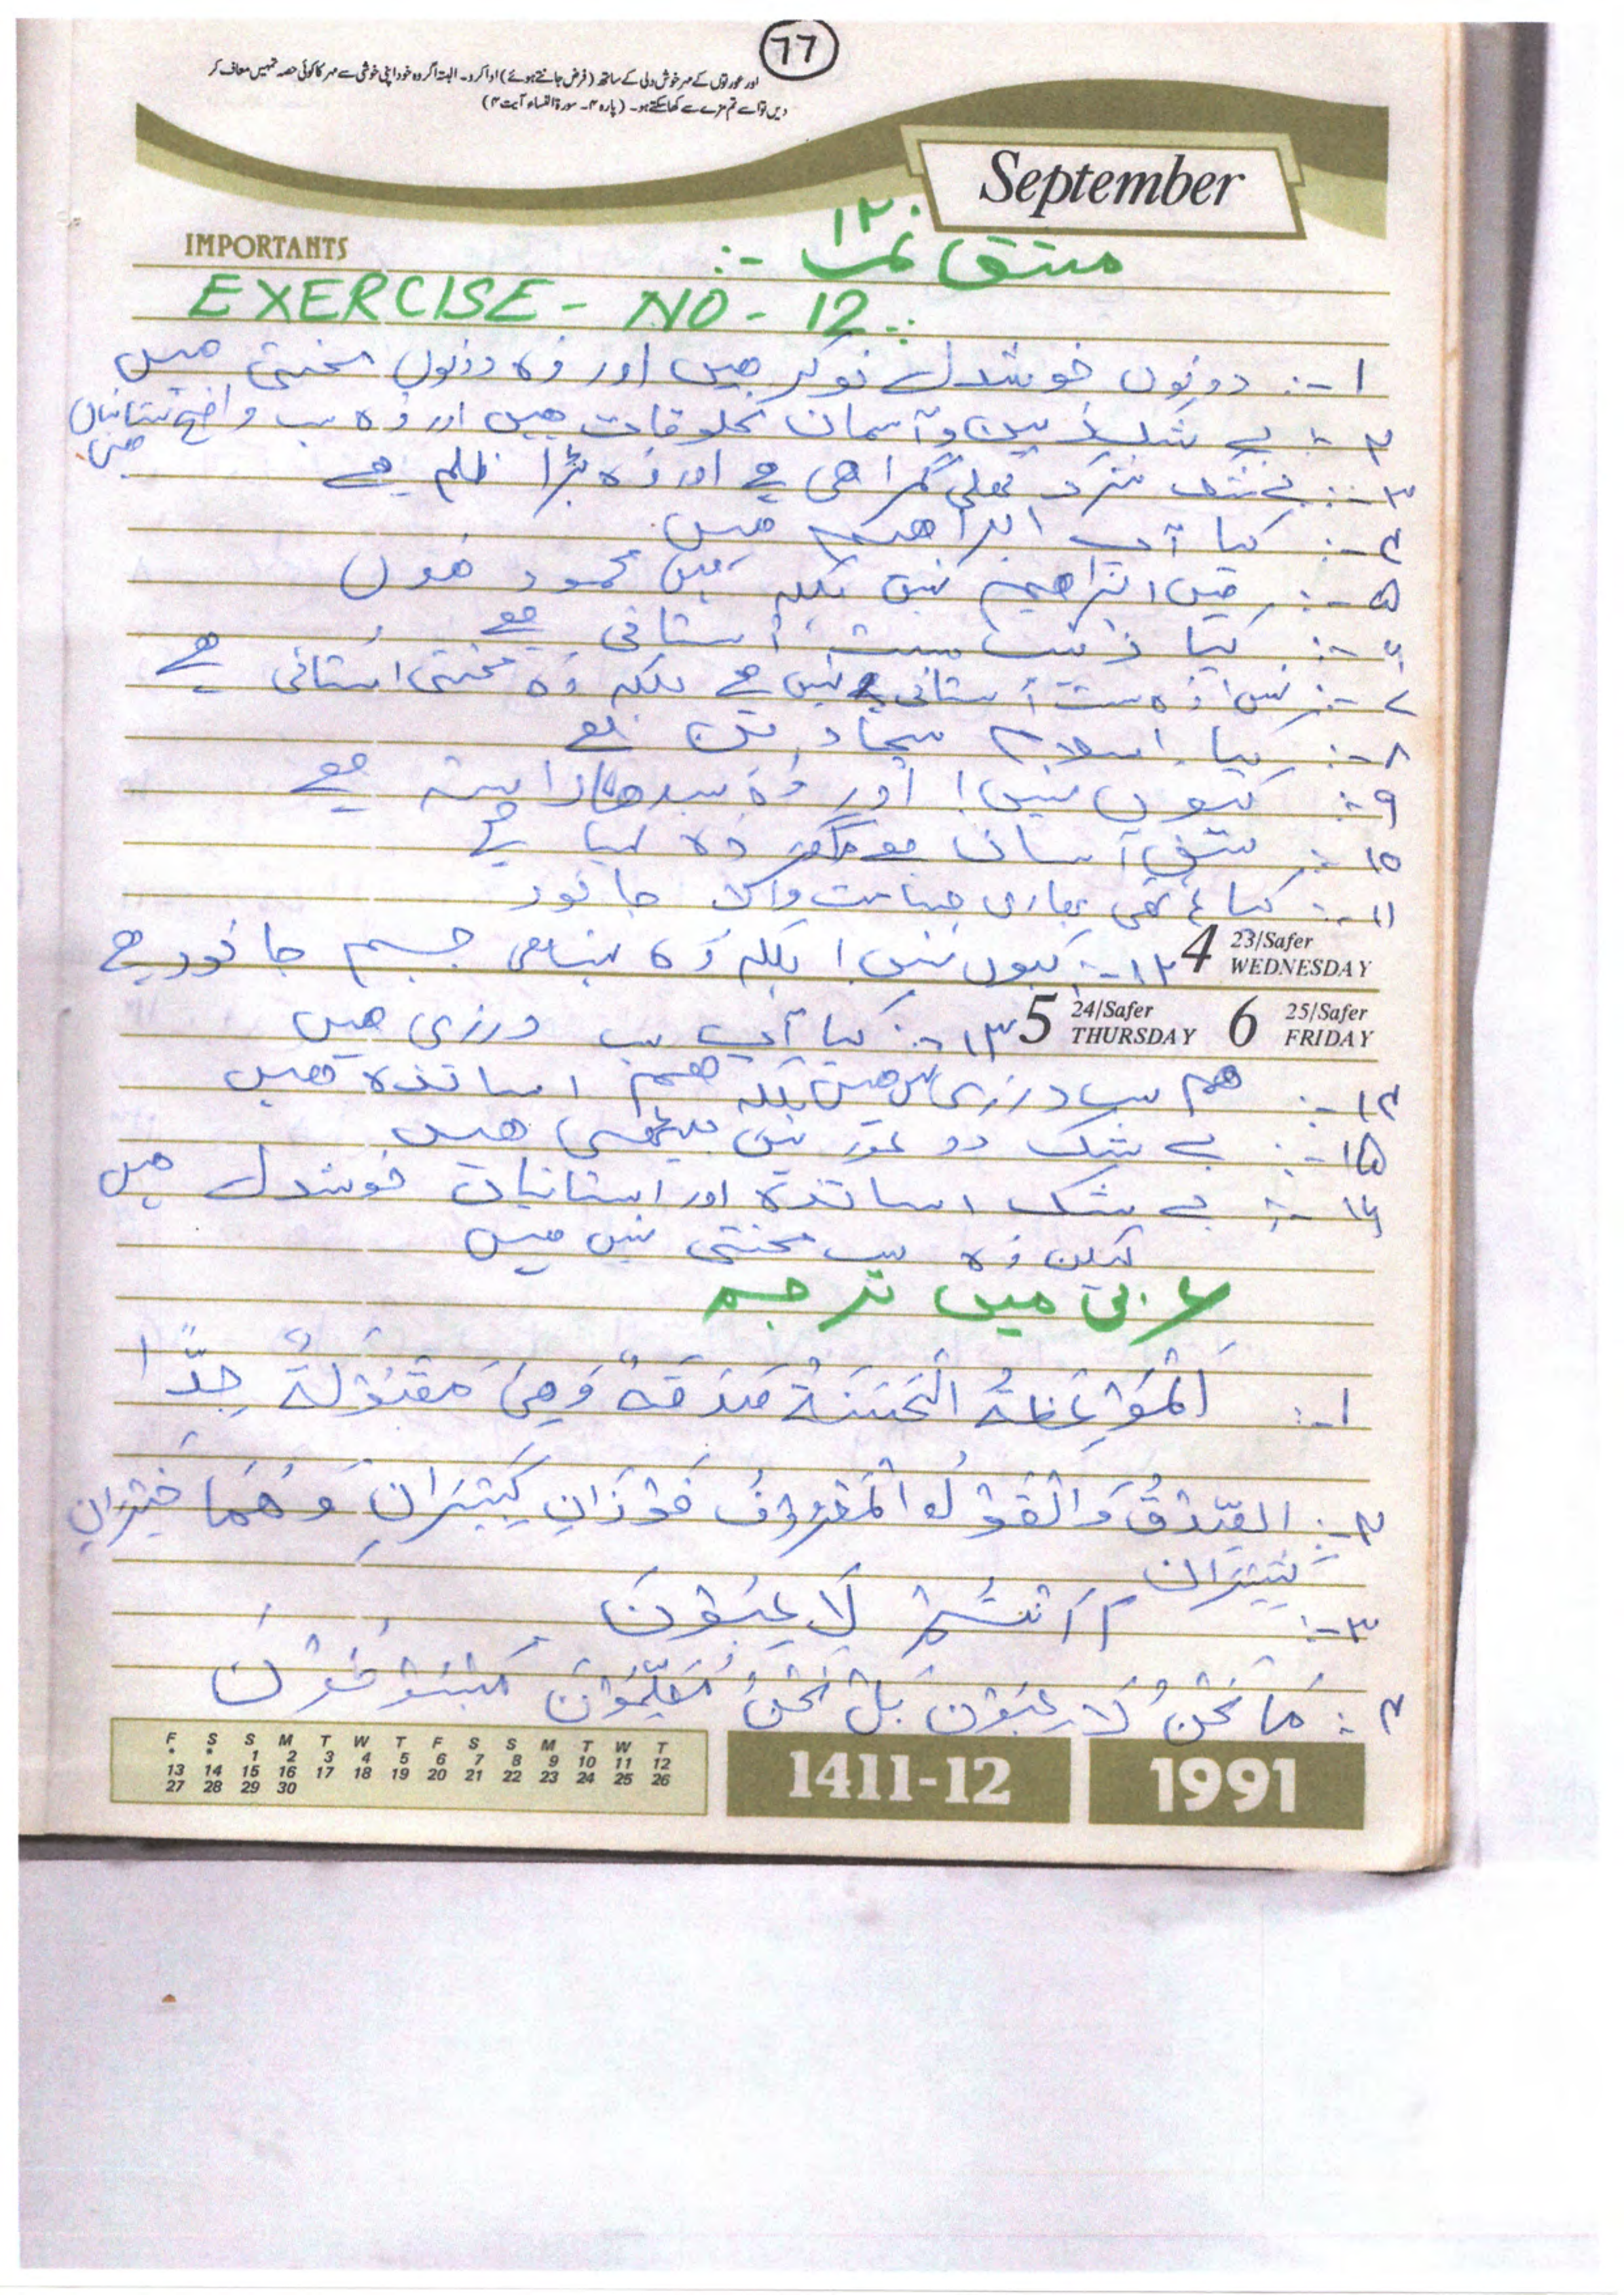 77
اور عورتوں کے مہر خوش دلی کے ساتھ (فرض جانتے ہوئے) ادا کرو۔ البتہ اگر وہ خود اپنی خوشی سے مہر کا کوئی حصہ تمہیں معاف کر
دیں تو اسے تم مزے سے کھا سکتے ہو۔ (پارہ ۴۔ سورۃ النساء آیت ۴)
September
IMPORTANTS
مشق نمبر ۱۲ :-
EXERCISE - NO - 12 :
۱ -: دونوں خوشدل نوکر ہیں اور وہ دونوں محنتی ہیں
۲ -: بے شک زمین و آسمان مخلوقات ہیں اور وہ سب واضح نشانیاں ہیں
۳ -: بے شک شرک کھلی گمراہی ہے اور وہ بڑا ظلم ہے
۴ -: کیا آپ ابراھیم ہیں
۵ -: میں ابراھیم نہیں بلکہ میں محمود ہوں
۶ -: کیا زینب سست استانی ہے
۷ -: نہیں! وہ سست استانی نہیں ہے بلکہ وہ محنتی استانی ہے
۸ -: کیا اسلام سچا دین ہے
۹ -: کیوں نہیں! اور وہ سیدھا راستہ ہے
۱۰ -: مشق آسان ہے مگر وہ لمبا ہے
۱۱ -: کیا بھاری جسامت والا جانور
4 23/Safer WEDNESDAY
۱۲ -: کیوں نہیں! بلکہ وہ جسیم جانور ہے
5 24/Safer THURSDAY 6 25/Safer FRIDAY
۱۳ -: کیا آپ سب درزی ہیں
۱۴ -: ہم سب درزی نہیں ہیں بلکہ ہم اساتذہ ہیں
۱۵ -: بے شک دو عورتیں بیٹھی ہیں
۱۶ -: بے شک اساتذہ اور استانیاں خوشدل ہیں
لیکن وہ سب محنتی نہیں ہیں
عربی میں ترجمہ
۱ -: اَلْمَوْعِظَةُ الْحَسَنَةُ صَدَقَةٌ وَهِیَ مَقْبُوْلَةٌ جِدًّا
۲ -: الصِّدْقُ وَالْقَوْلُ الْمَعْرُوْفُ فَوْزَانِ كَبِيْرَانِ وَهُمَا خَيْرَانِ
كَثِيْرَانِ
۳ -: أَ أَنْتُمْ لَاعِبُوْنَ
۴ -: مَا نَحْنُ لَاعِبُوْنَ بَلْ نَحْنُ مُعَلِّمُوْنَ
F S S M T W T F S S M T W T
* * 1 2 3 4 5 6 7 8 9 10 11 12
13 14 15 16 17 18 19 20 21 22 23 24 25 26
27 28 29 30
1411-12
1991